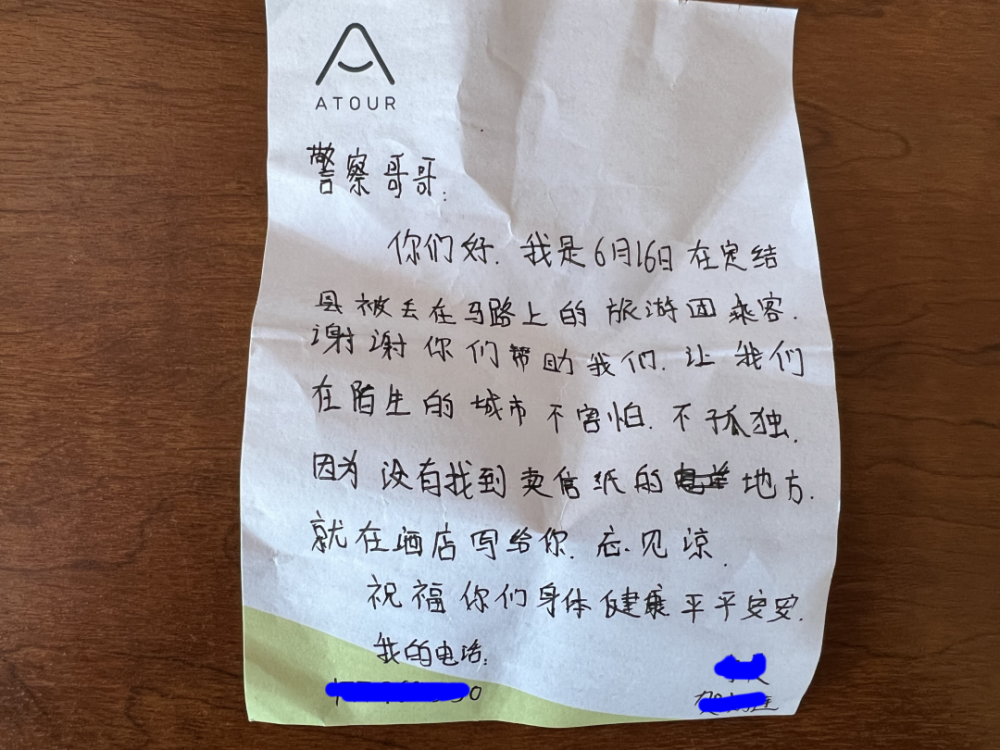 ATOUR
警察哥哥:
你们好.我是6月16日在定结
县被丢在马路上的旅游团乘客.
谢谢你们帮助我们.让我们
在陌生的城市不害怕.不孤独.
因为没有找到卖信纸的地方.
就在酒店写给你.忘见谅.
祝福你们身体健康平平安安.
我的电话: